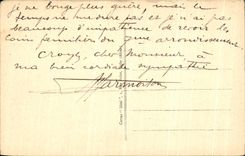 je ne bouge plus guère, mais le
temps ne me dure pas et je n'ai pas
beaucoup d'impatience de revoir les
coins familiers du 7me arrondissement.
Croyez, cher Monsieur à
ma bien cordiale sympathie